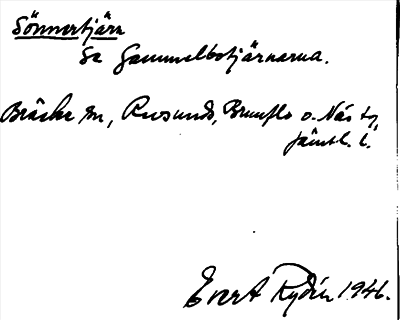 Sönnertjärn
Se Gammelbotjärnarna.
Bräcke sn, Revsunds, Brunflo o. Näs tg,
Jämtl. l.
Evert Rydén 1946.